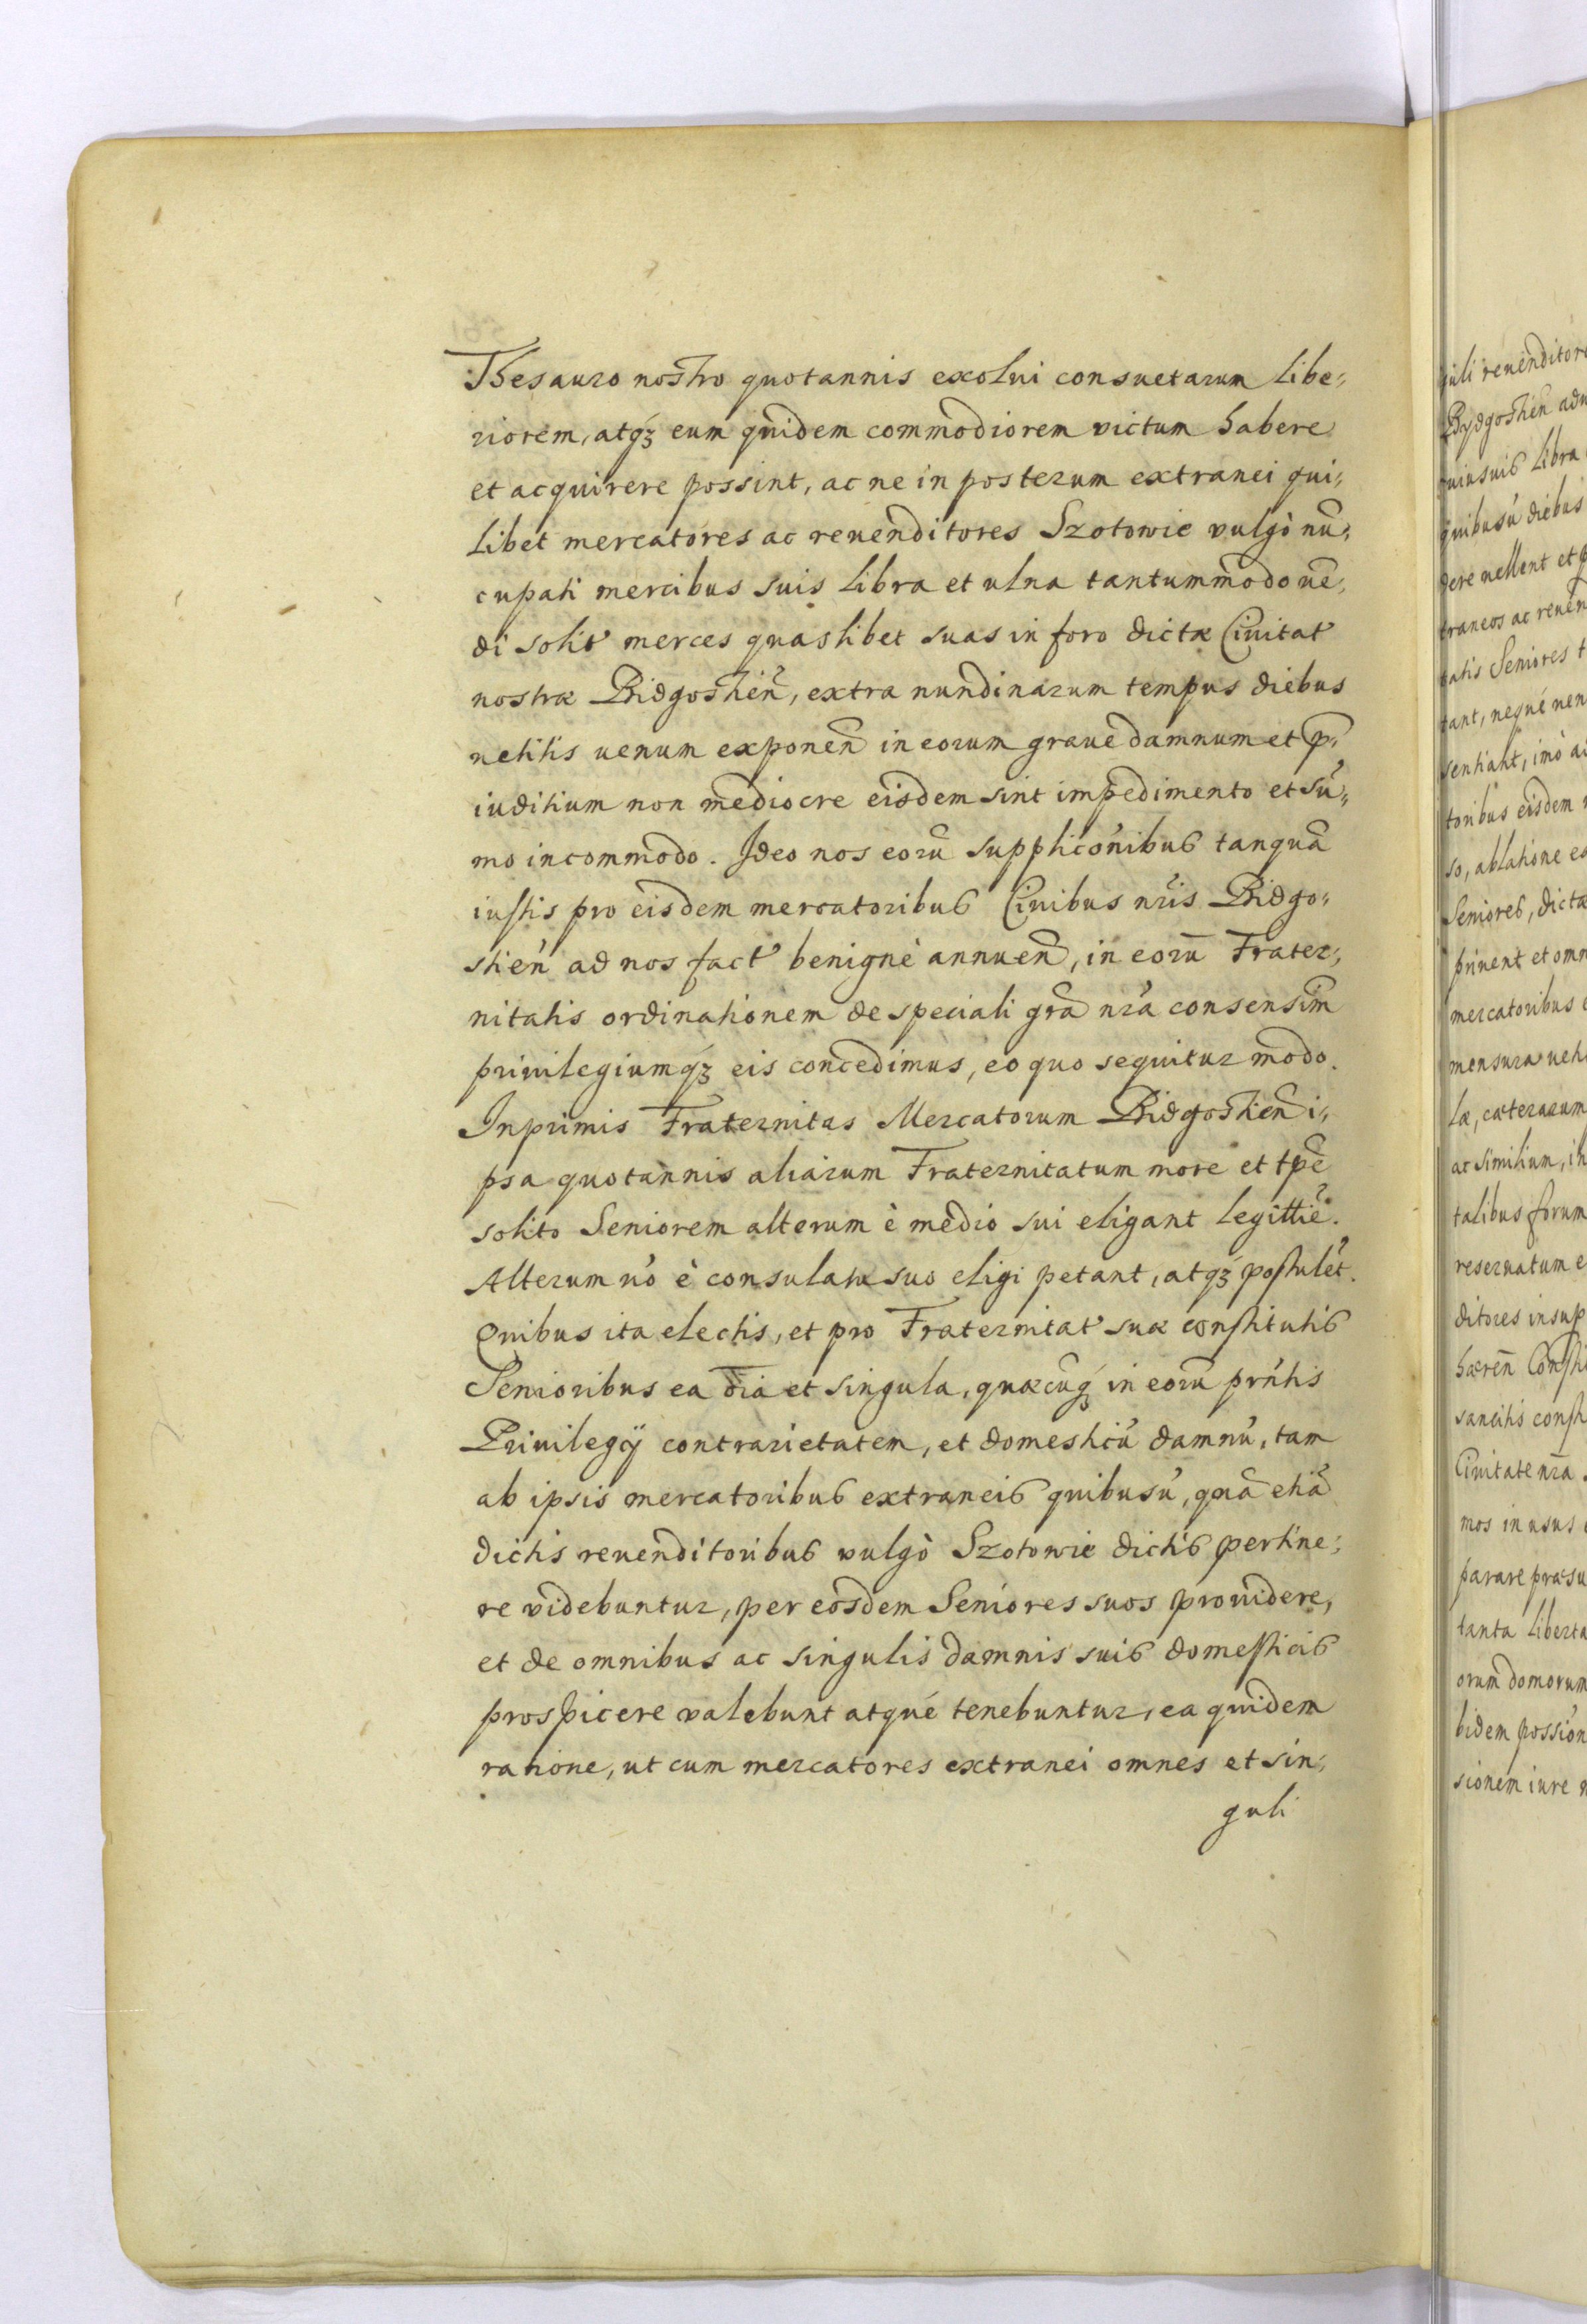 Thesauro nostro quotannis exolui consuetarum libe,,
riorem, atqȝ eum quidem commodiorem victum habere
et acquirere possint, ac ne in posterum extranei qui,,
libet mercatores ac reuenditores Szotowie vulgò nū,,
cupati mercibus suis libra et ulna tantummodo uē,,
di solit merces quaslibet suas in foro dictæ Ciuitat
nostræ Bidgostień, extra nundinarum tempus diebus
uetitis uenum exponeñ in eorum graue damnum et p̄,,
iuditium non mediocre eisdem sint impedimento et sū,,
mo incommodo. Ideo nos eorū supplicōnibus tanquā
iustis pro eisdem mercatoribus Ciuibus nr̄is Bidgo,,
stień ad nos fact benignè annueñ, in eorū Frater,,
nitatis ordinationem de speciali gr̄a nr̄a consensim
priuilegiumqȝ eis concedimus, eo quo sequitur modo.
Inprimis Fraternitas Mercatorum Bidgostień i,,
psa quotannis aliarum Fraternitatum more et tp̄e
solito Seniorem alterum è medio sui eligant legittiē.
Alterum uō è consulatu suo eligi petant, atqȝ postulēt.
Quibus ita electis, et pro Fraternitat suæ constitutis
Senioribus ea oīa et singula, quæcūq in eorū prn̄tis
Priuilegij contrarietatem, et domesticū damnū, tam
ab ipsis mercatoribus extraneis quibusū, quā etiā
dictis reuenditoribus vulgò Szotowie dictis pertine,,
re videbuntur, per eosdem Seniores suos prouidere,
et de omnibus ac singulis damnis suis domesticis
prospicere valebunt atqué tenebuntur, ea quidem
ratione, ut cum mercatores extranei omnes et sin,,
guli
guli reuenditor
Bydgostień adu
libra
quibusū diebus
dere uellent et p
traneos ac reuen
tatis Seniores t
tant, nequé uen
sentiant, imò a
toribus eisdem
so, ablatione eo
Seniores, dictæ
priuent et omn
mercatoribus
mensura ueh
læ, cæterarum
ac similium, in
talibus forum
reseruatum e
ditores insup
hæreñ Consti
sancitis const
Ciuitate nr̄a
mos in usus
parare præsu
tanta liberta
orum domorum
bidem possion
sionem iure